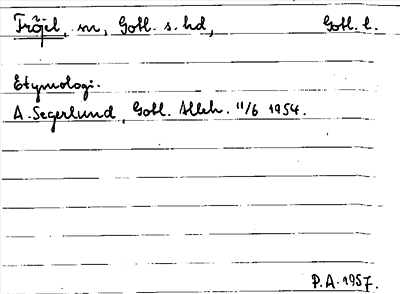 Fröjel, sn, Gotl. s. hd, Gotl. l.
Etymologi.
A. Segerlund, Gotl. Alleh. 11/6 1954.
P.A. 1957.